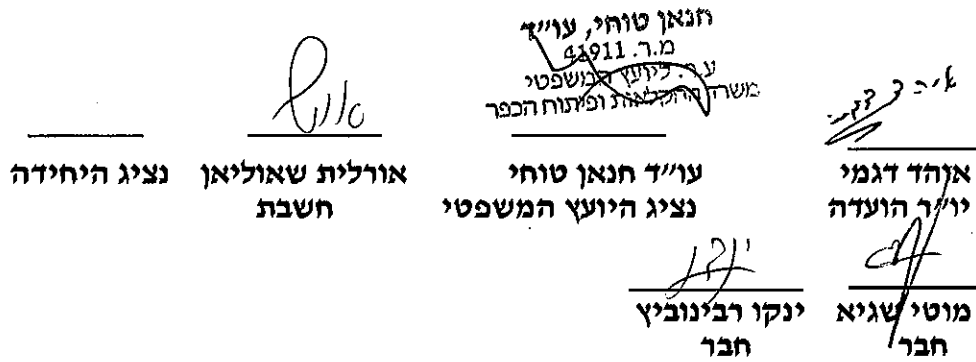 חנאן טוחי, עו״ד
מ.ר. 41911
ע.ר. ליועץ המשפטי
משרד החקלאות ופיתוח הכפר
אוהד דגמי
יו״ר הועדה
עו״ד חנאן טוחי
נציג היועץ המשפטי
אורלית שאוליאן
חשבת
נציג היחידה
מוטי שגיא
חבר
ינקו רבינוביץ
חבר